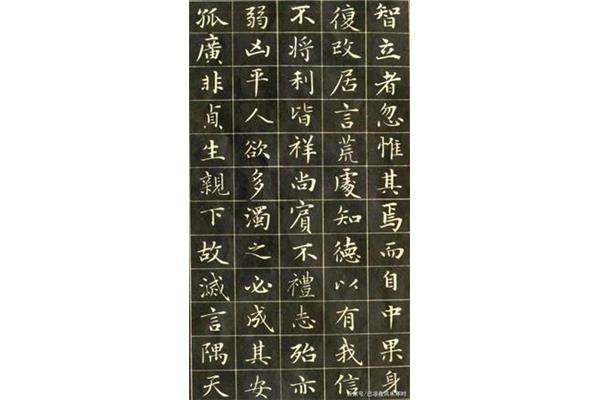 智立者忽惟其焉而自中果身
復改居言荒處知德以有我信
不將利皆祥尚賓不禮志殆亦
弱凶平人欲多濁之必成其安
孤廣非貞生親下故滅言隅天